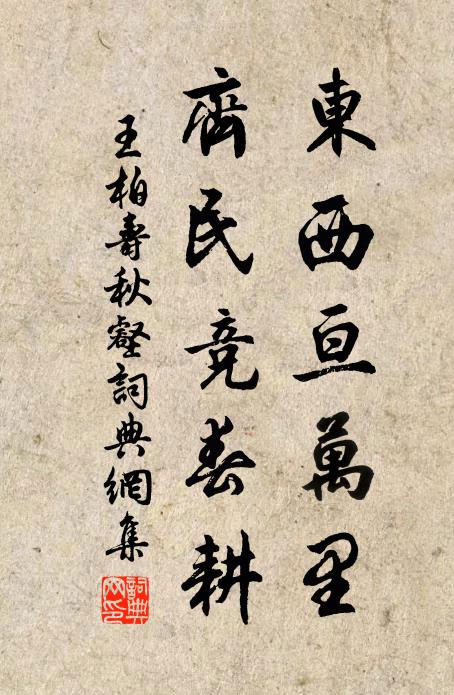 東西亘萬里
齊民競春耕
王柏壽秋壑詞典網集
詞典
网印